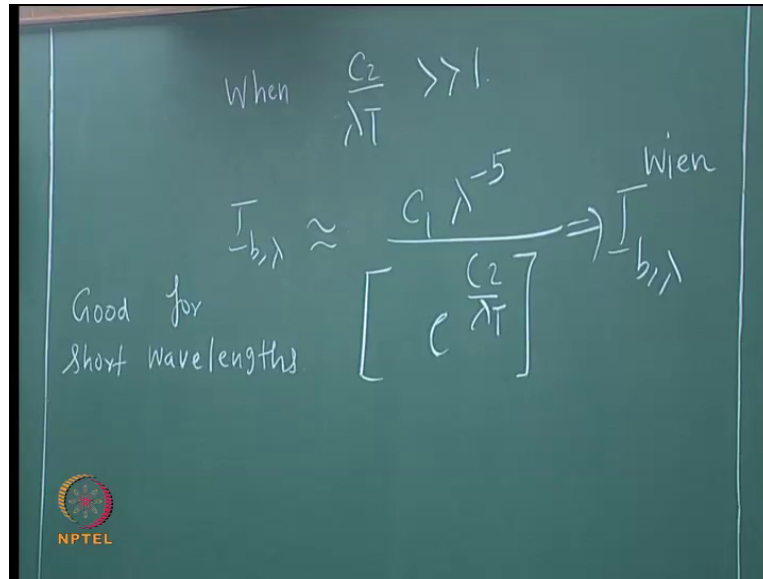 When C2/λT >> 1.
I_b,λ ≈ C1 λ^-5 / [e^(C2/λT)] ⇒ I_b,λ^Wien
Good for
short wavelengths.
NPTEL